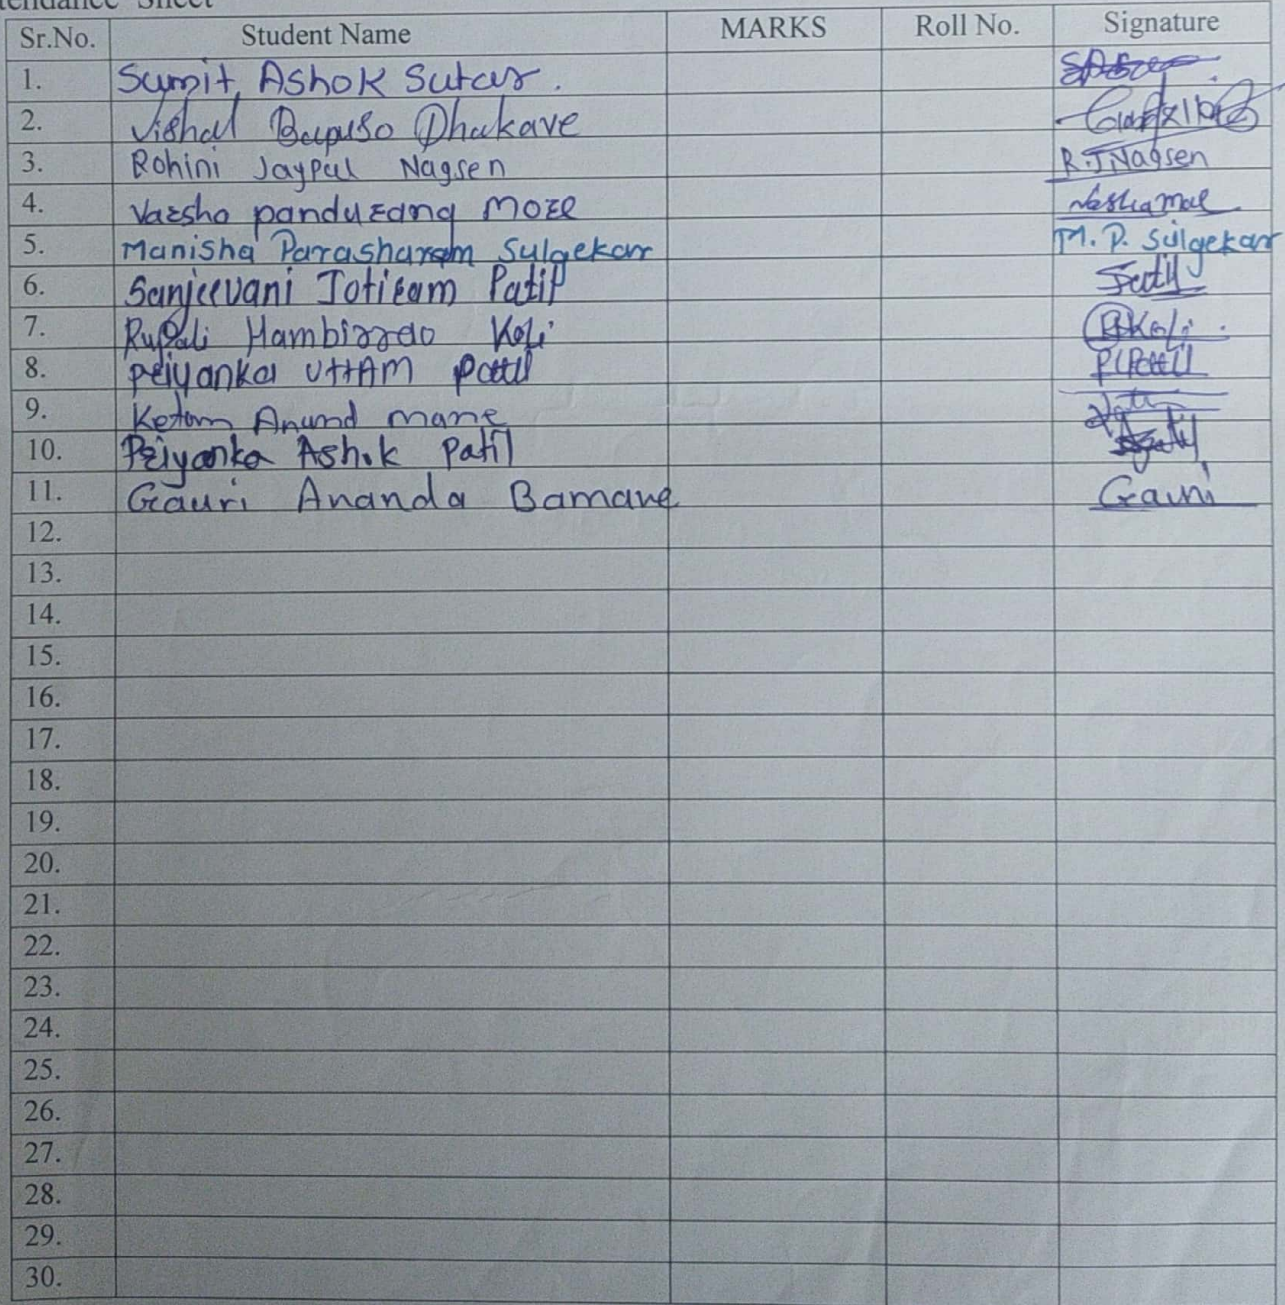 tendance Sheet
Sr.No. Student Name MARKS Roll No. Signature
1. Sumit Ashok Sutar.
2. Vishal Bapuso Dhakave
3. Rohini Jaypal Nagsen R.J.Nagsen
4. Varsha pandurang more
5. Manisha Parasharam Sulgekar M. P. Sulgekar
6. Sanjeevani Jotiram Patil
7. Rupali Hambirrao Koli RKoli.
8. priyanka UttAM patil PUPatil
9. Ketan Anand mane
10. Priyanka Ashok Patil
11. Gauri Ananda Bamane Gauri
12.
13.
14.
15.
16.
17.
18.
19.
20.
21.
22.
23.
24.
25.
26.
27.
28.
29.
30.